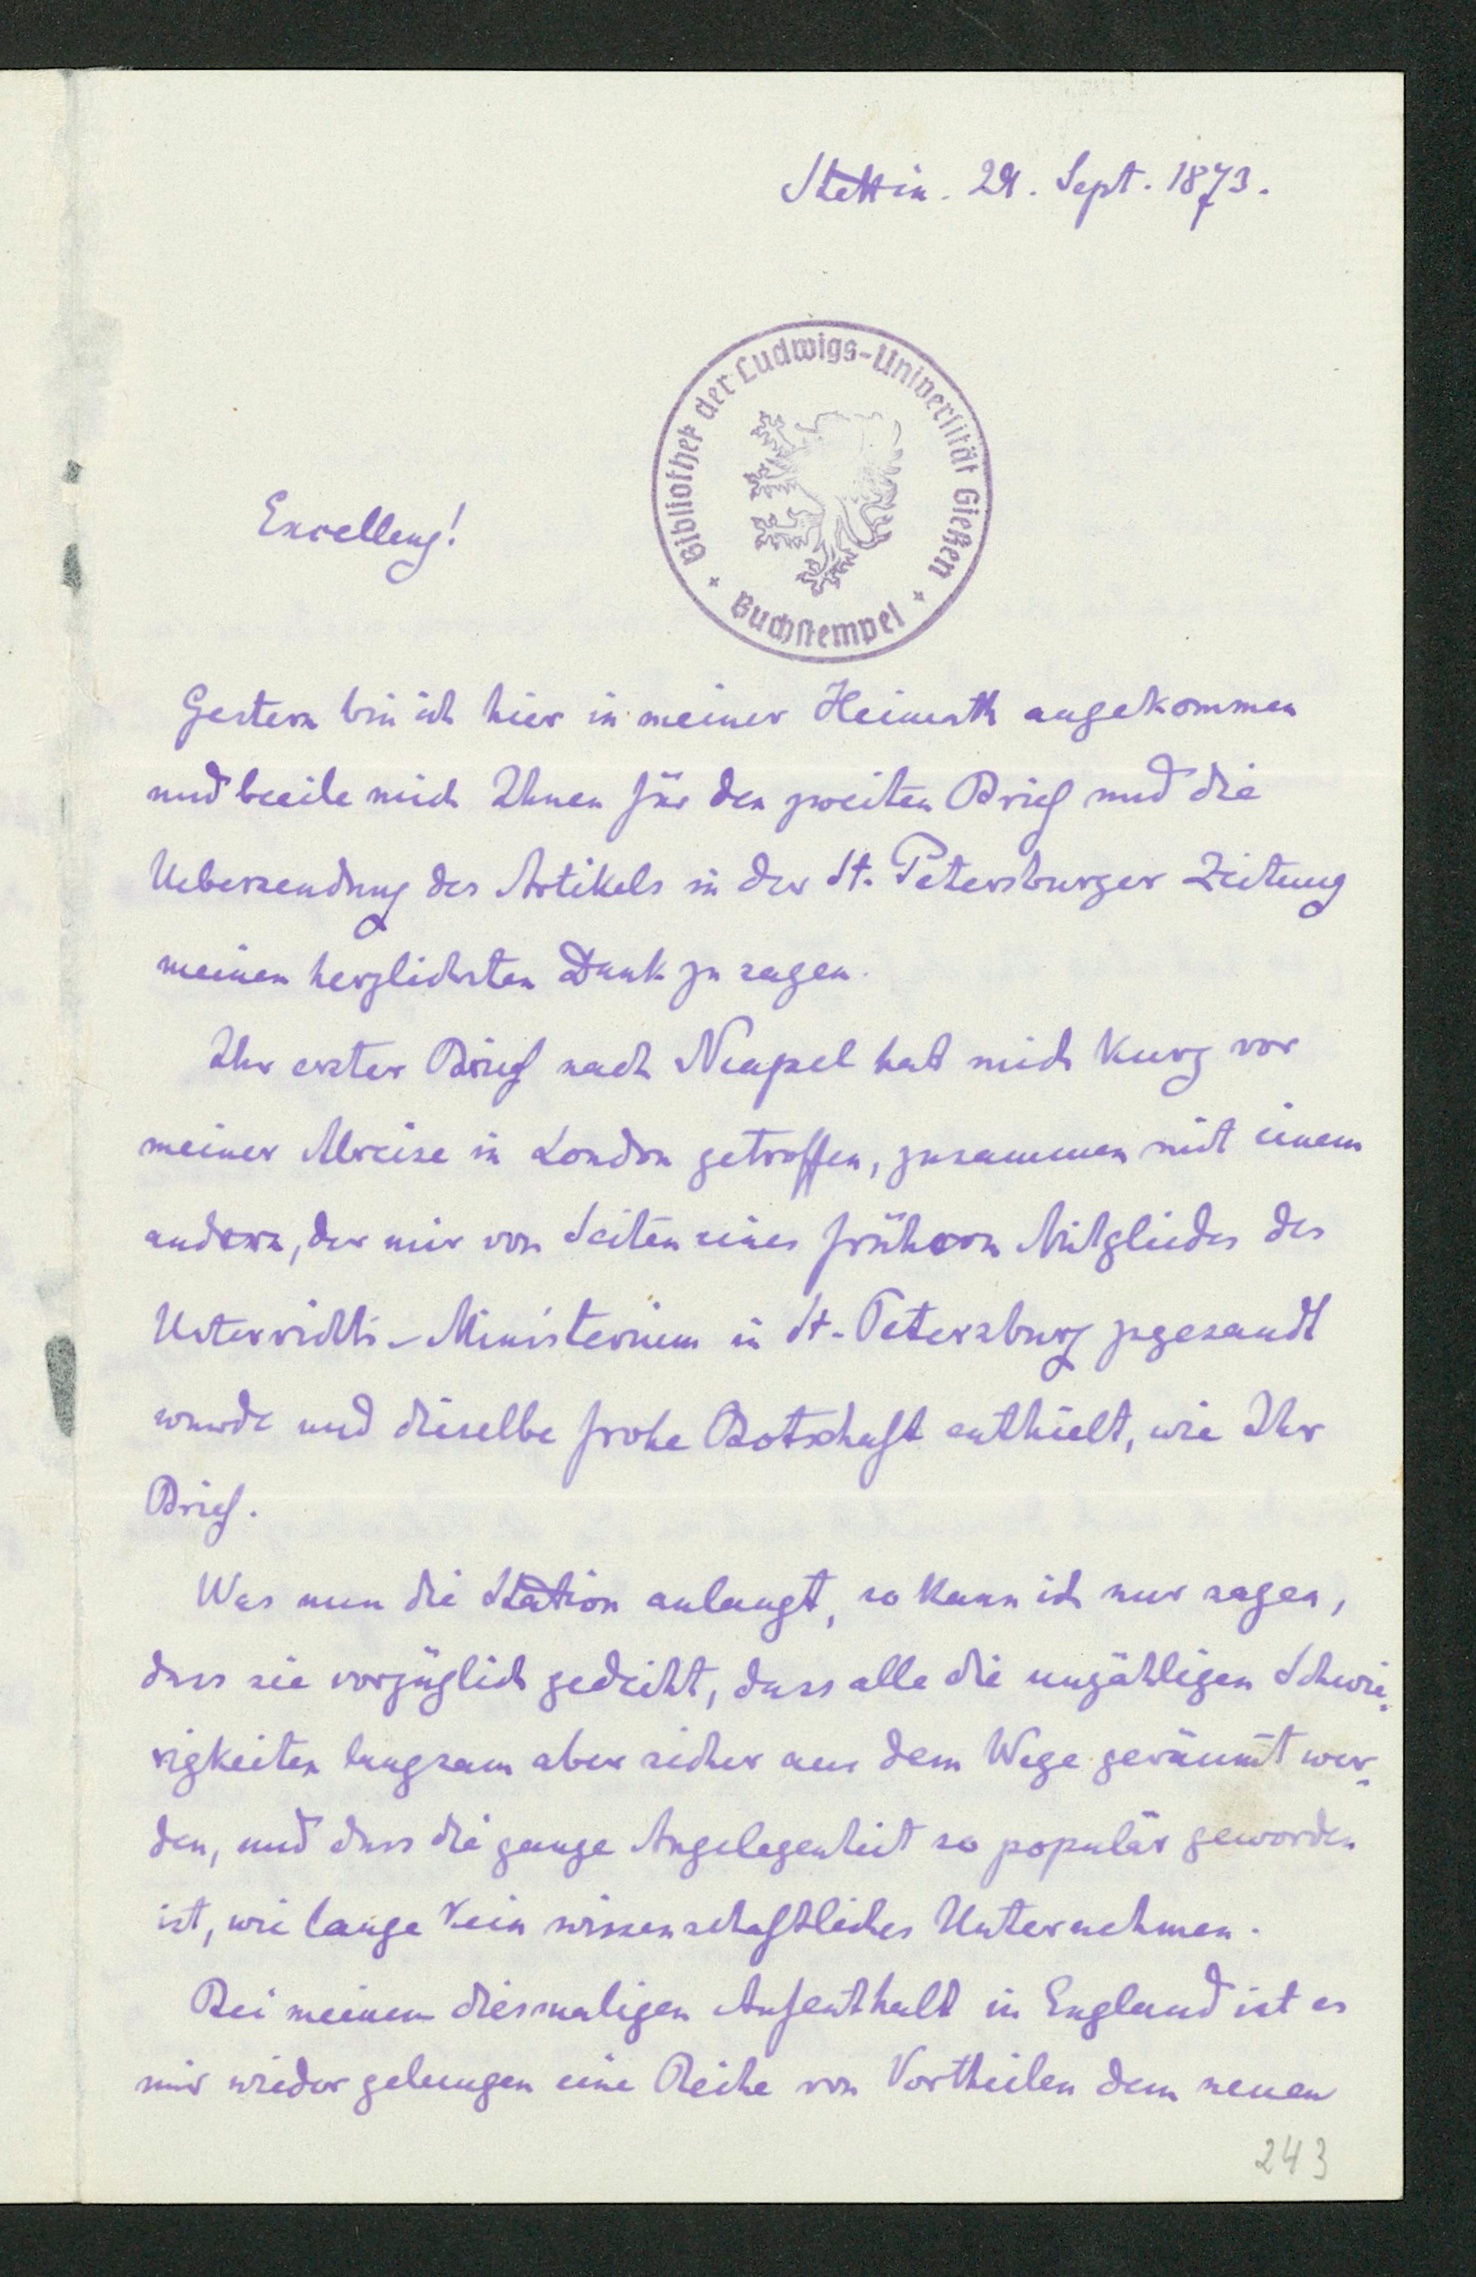 Stettin. 29. Sept. 1873.
Bibliothek der Ludwigs-Universität Gießen
+ Buchstempel +
Excellenz!
Gestern bin ich hier in meiner Heimath angekommen
und beeile mich Ihnen für den zweiten Brief und die
Uebersendung des Artikels in der St. Petersburger Zeitung
meinen herzlichsten Dank zu sagen.
Ihr erster Brief nach Neapel hat mich kurz vor
meiner Abreise in London getroffen, zusammen mit einem
andern, der mir von Seiten eines frühern Mitgliedes des
Unterrichts-Ministerium in St. Petersburg zugesandt
wurde und dieselbe frohe Botschaft enthielt, wie Ihr
Brief.
Was nun die Station anlangt, so kann ich nur sagen,
dass sie vorzüglich gedeiht, dass alle die unzähligen Schwie-
rigkeiten langsam aber sicher aus dem Wege geräumt wer-
den, und dass die ganze Angelegenheit so populär geworden
ist, wie lange kein wissenschaftliches Unternehmen.
Bei meinem diesmaligen Aufenthalt in England ist es
mir wieder gelungen eine Reihe von Vortheilen dem neuen
243